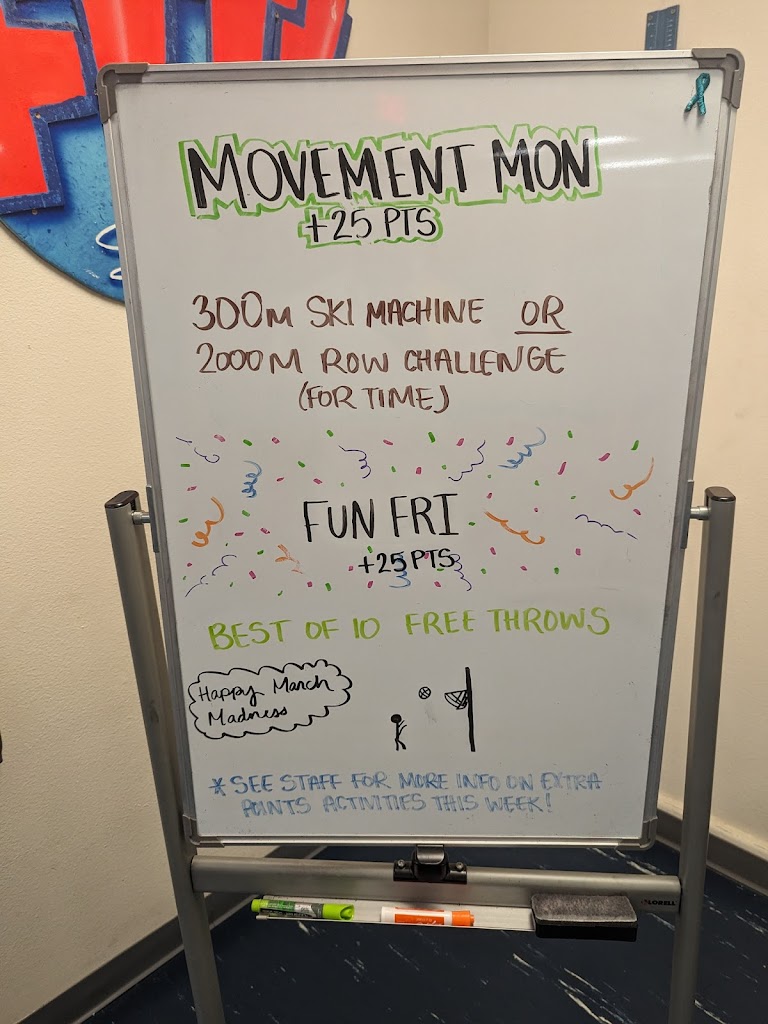 MOVEMENT MON
+25 PTS
300M SKI MACHINE OR
2000M ROW CHALLENGE
(FOR TIME)
FUN FRI
+25 PTS
BEST OF 10 FREE THROWS
Happy March
Madness
* SEE STAFF FOR MORE INFO ON EXTRA
POINTS ACTIVITIES THIS WEEK!
LORELL